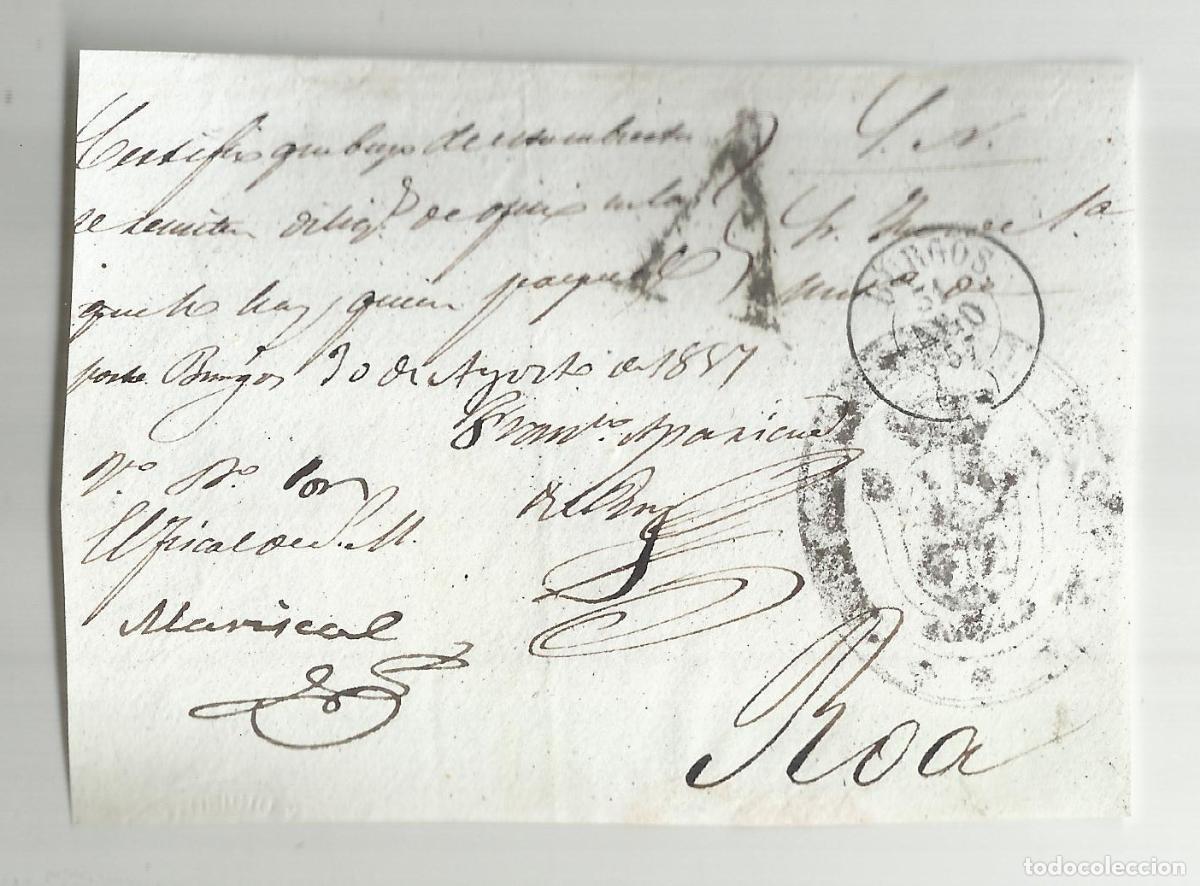 Certifico que bajo de esta cubierta
se remiten dilig.s de oficio en las
que no hay quien pague el
porte Burgos 30 de Agosto de 1857
Fran.co Aparicio
del
V.o B.o
El Fiscal de S. M.
Mariscal
S. N.
S.r Juez de 1.a
de
A
BURGOS
31
AGO
57
Roa
todocoleccion